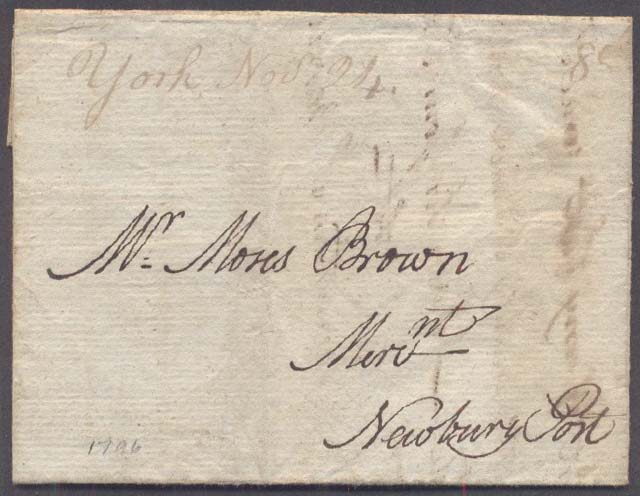 York Novr 24. 8c
Mr. Moses Brown
Merct
Newbury Port
1796